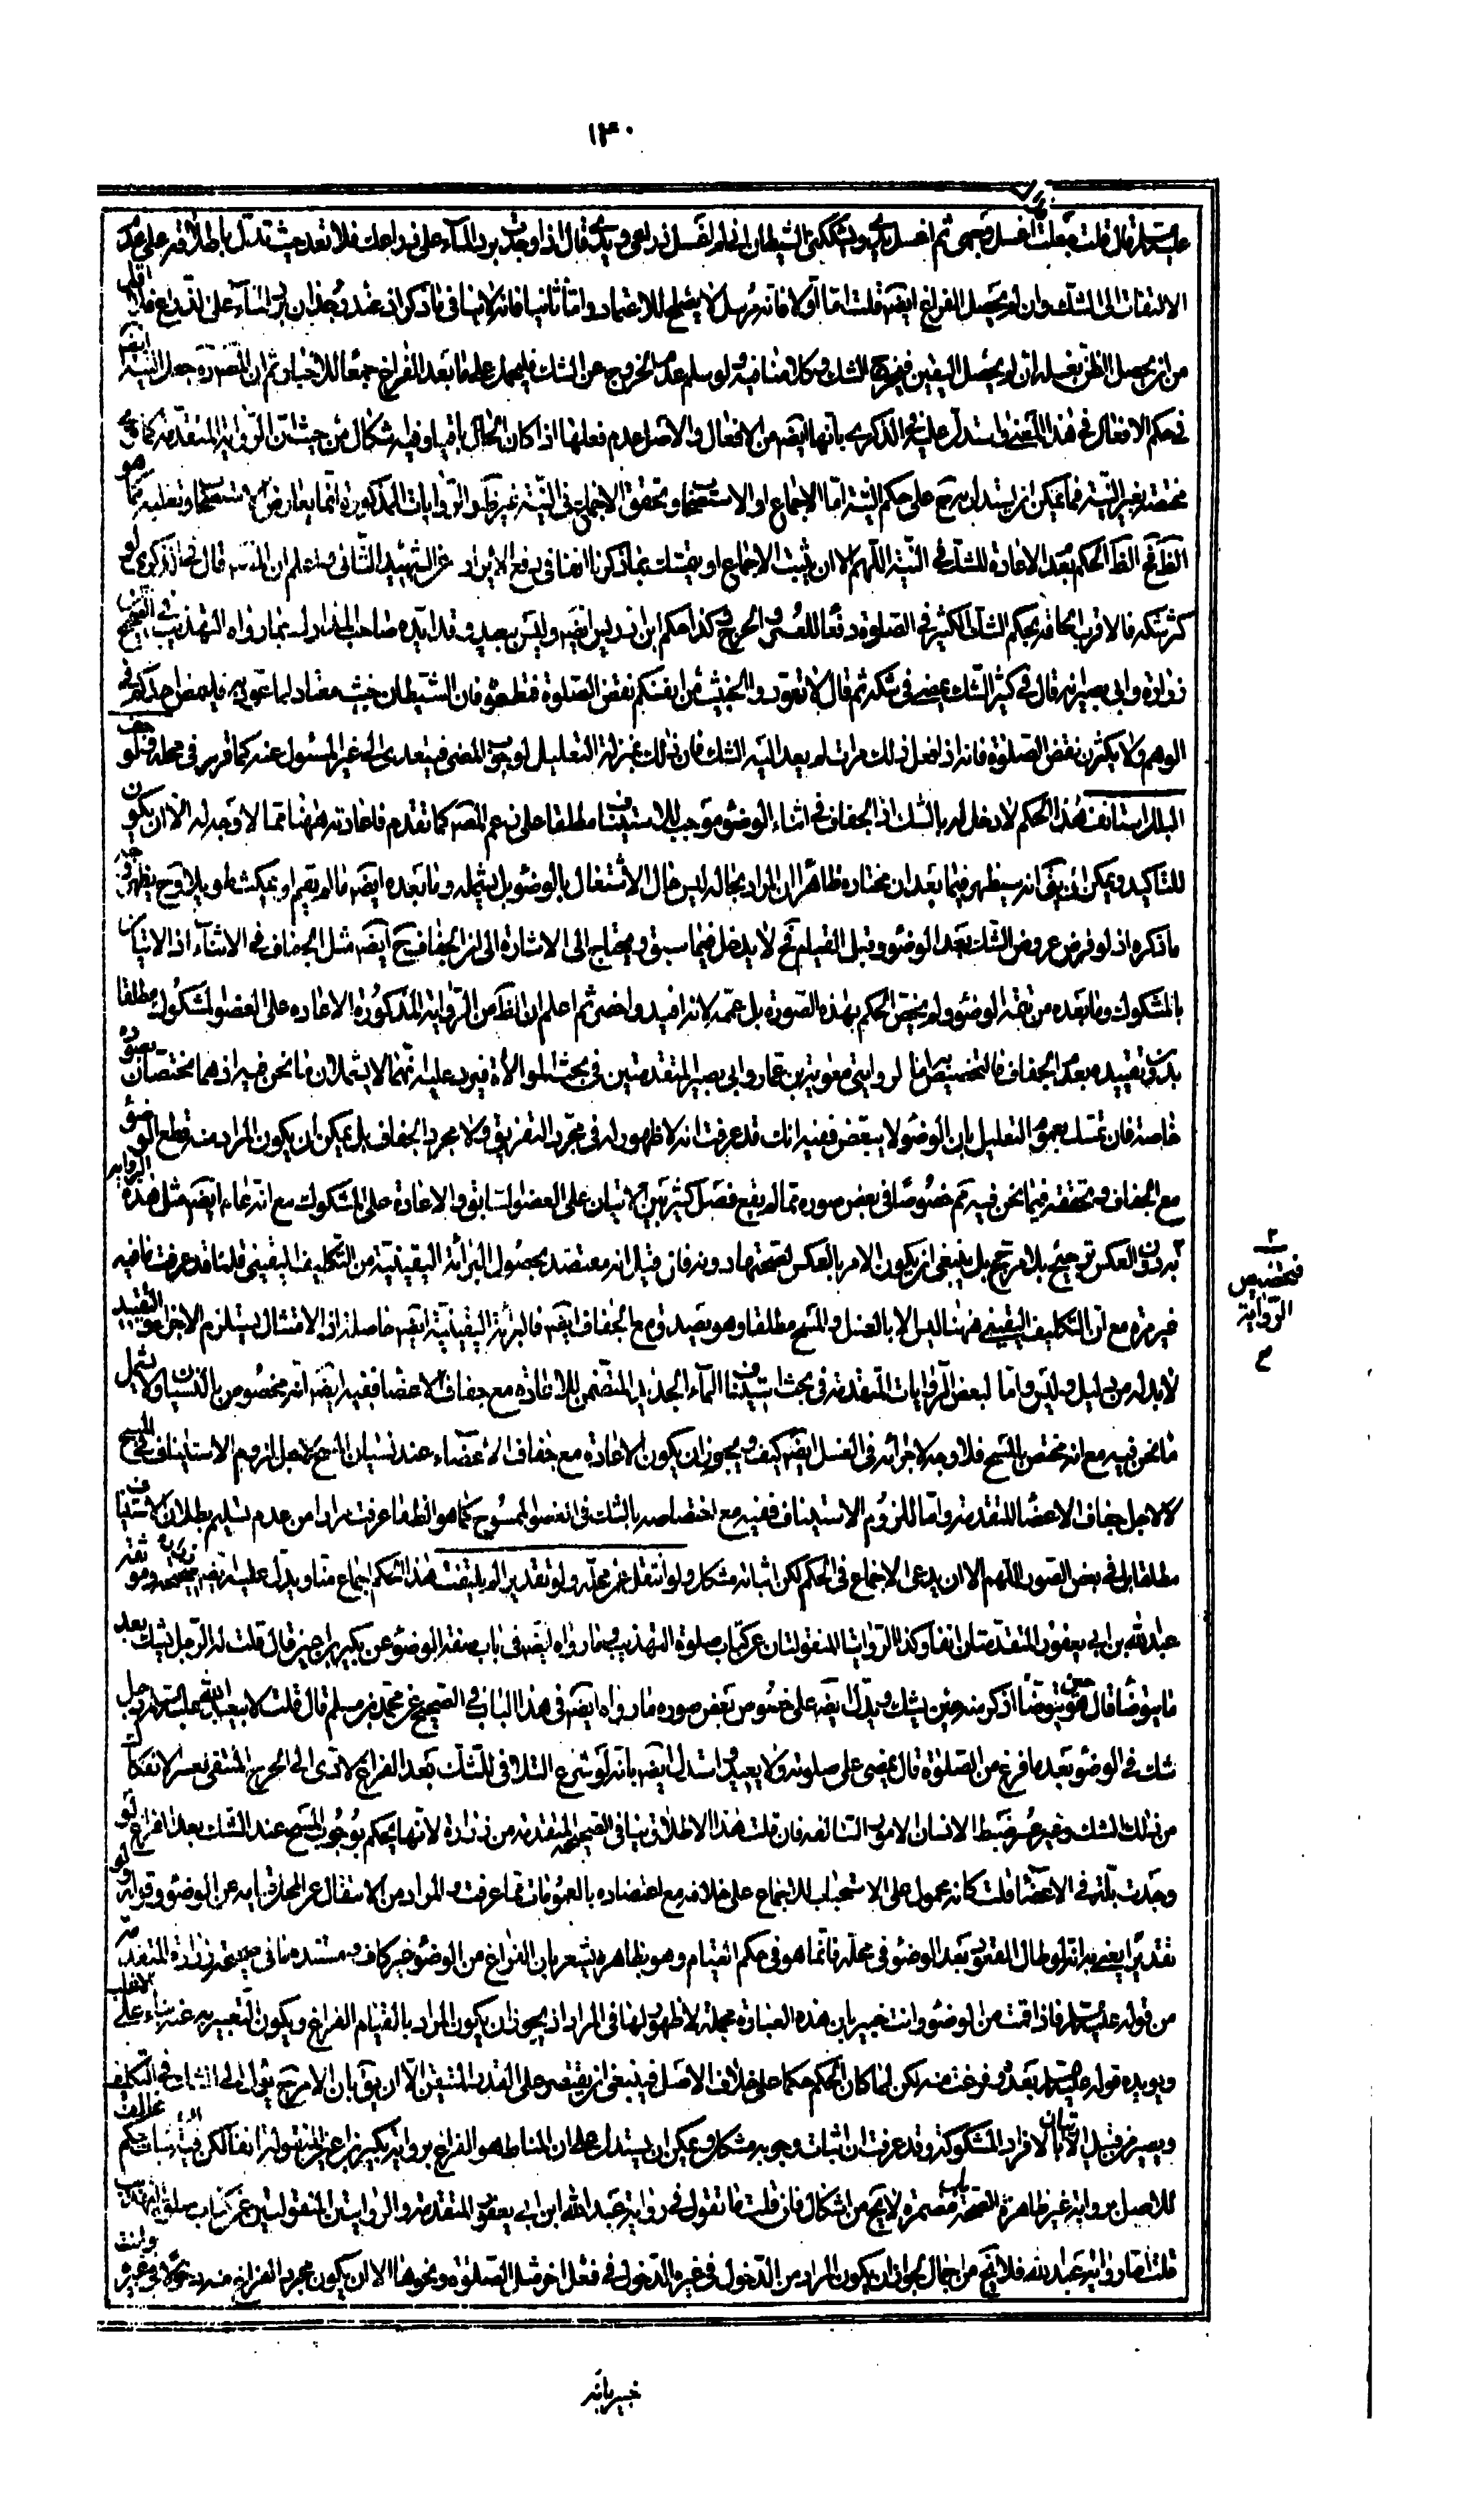 ١٣٠
عليه السلام قال قلت له اغسل وجهى ثم اغسل يدى ويشككنى الشيطان انى لم اغسل ذراعى ويدى قال اذا وجدت برد الماء على ذراعك فلا تعد حيث تدل باطلاقه على عدم
الالتفات الى الشك وان لم يحصل الفراغ ايضا قلت اما اولا فانه مرسل لا يصلح للاعتماد واما ثانيا فانه لا ينافى ما ذكر اذ عند وجدان برد الماء على الذراع فلا اقل
من ان يحصل الظن بغسله ان لم يحصل اليقين فيخرج الشك وكلامنا فيه ولو سلم عدم الخروج عن الشك فليحمل على ما بعد الفراغ جمعا للاخبار ثم ان المصنف ره جعل النية ايضا
فى حكم الافعال فى هذا المعنى واستدل عليه فى الذكرى بانها ايضا من الافعال والاصل عدم فعلها اذا كان الحال باقيا وفيه اشكال من حيث ان الرواية المتقدمة كما ترى
مختصة بغير النية فما يمكن ان يستدل به ح على حكم النية اما الاجماع او الاستصحاب وتحقق الاجماع فى النية غير ظ والروايات المذكورة انما يعارض الاستصحاب وتغليبه كما هو
الظ فح الظ الحكم بعدم الاعادة للشك فى النية اللهم الا ان يثبت الاجماع او يتمسك بما ذكرنا انفا فى دفع الايراد عن الشهيد الثانى ره واعلم ان المصنف قال فى الذكرى لو
كثر شكه فالاقرب الحاقه بحكم الشك الكثير فى الصلوة دفعا للعسر والحرج وكذا حكم ابن ادريس ايضا وليس ببعيد وقد ايده صاحب المدارك بما رواه التهذيب فى الصحيح عن
زرارة وابى بصير انه قال فى كثير الشك يمضى فى شكه ثم قال لا تعودوا الخبيث من انفسكم نقض الصلوة فتطمعوه فان الشيطان خبيث معتاد لما عود به فليمض احدكم فى
الوهم ولا يكثرن نقض الصلوة فانه اذا فعل ذلك مرات لم يعد اليه الشك فان ذلك بمنزلة التعليل لوجوب المضى فيتعدى الى غير المسئول عنه كما قرر فى محله فلو جف
البلل استانف هذا الحكم لا دخل له بالشك اذ الجفاف فى اثناء الوضوء موجب للاستيناف مطلقا على زعم المصنف كما تقدم فاعادته ههنا مما لا وجه له الا ان يكون
للتاكيد ويمكن ان يق انه سيظهر فيما بعد ان مختاره ظاهرا ان المراد بحاله ليس حال الاشتغال بالوضوء بل يشمله وما بعده ايضا ما لم يقم او يمكث طويلا وح يظهر وجه
ما ذكره اذ لو فرض عروض الشك بعد الوضوء وقبل القيام فح لا يدخل فيما سبق ويحتاج الى الاشارة الى ان الجفاف ح ايضا مثل الجفاف فى الاثناء اذ الاتيان
بالمشكوك وما بعده من تتمة الوضوء ولم يختص الحكم بهذه الصورة بل عممه لانه افيد واخصر ثم اعلم ان الظ من الرواية المذكورة الاعادة على العضو المشكوك مطلقا
بدون تقييده بعدم الجفاف فالتخصيص به اما لروايتى معوية بن عمار وابى بصير المتقدمتين فى بحث الموالاة فيرد عليه انهما لا يشملان ما نحن فيه اذ هما مختصتان بصورة
خاصة فان تمسك بعموم التعليل بان الوضوء لا يبعض ففيه انك قد عرفت انه لا ظهور له فى مجرد التفريق ولا مجرد الجفاف بل يمكن ان يكون المراد منه قطع الوضوء
مع الجفاف وتحققه فيما نحن فيه ثم خصوصا فى بعض صوره مما لم يقع فصل كثير بين الاتيان على العضو السابق والاعادة على المشكوك مع انه عام ايضا مثل هذه الرواية
٢ بدون العكس ترجيح بلا مرجح بل ينبغى ان يكون الامر بالعكس لصحتها دونه فان قيل انه معتضد بحصول البرائة اليقينية من التكليف اليقينى قلنا قد عرفت ما فيه
غير مرة مع ان التكليف اليقينى ههنا ليس الا بالغسل والمسح مطلقا وهو يصدق مع الجفاف ايضا فالبرائة اليقينية ايضا حاصلة اذ الامتثال يستلزم الاجزاء والتقييد
لا بد له من دليل وليس واما لبعض الروايات المتقدمة فى بحث استيناف الماء الجديد المتضمن للاعادة مع جفاف الاعضاء ففيه ايضا انه مخصوص بالنسيان ولا يشمل
ما نحن فيه مع انه مختص بالمسح فلا وجه لاجرائه فى الغسل ايضا كيف ويجوز ان يكون الاعادة مع جفاف الاعضاء عند نسيان المسح لاجل لزوم الاستيناف فى المسح
لا لاجل جفاف الاعضاء المتقدمة واما للزوم الاستيناف ففيه مع اختصاصه بالشك فى العضو الممسوح كما هو الظ ما عرفت مرارا من عدم تسليم بطلان الاستيناف
مطلقا بل فى بعض الصور اللهم الا ان يدعى الاجماع فى الحكم لكن اثباته مشكل ولو انتقل عن محله ولو تقديرا لم يلتفت هذا الحكم اجماع منا ويدل عليه ايضا صحيحة زرارة وموثقة
عبد الله بن ابى يعفور المتقدمتان انفا وكذا الروايتان المنقولتان عن كتاب صلوة التهذيب وما رواه ايضا فى باب صفة الوضوء عن بكير بن اعين قال قلت له الرجل يشك بعد
ما يتوضأ قال هو حين يتوضأ اذكر منه حين يشك ويدل ايضا على خصوص بعض صوره ما رواه ايضا فى هذا الباب فى الصحيح عن محمد بن مسلم قال قلت لابى عبد الله عليه السلام رجل
شك فى الوضوء بعد ما فرغ من الصلوة قال يمضى على صلوته ولا يعيد واستدل ايضا بانه لو شرع التلافى للشك بعد الفراغ لادى الى الحرج المنتفى لعسر الانفكاك
من ذلك الشك وغير عسر ضبط الانسان الامور السالفة فان قلت هذا الاطلاق ينافى الصحيحة المتقدمة من زرارة لانها يحكم بوجوب المسح عند الشك بعد الفراغ لو
وجدت بلة فى الاعضاء قلت كانه محمول على الاستحباب للاجماع على خلافه مع اعتضاده بالعمومات كما عرفت والمراد من الانتقال عن المحل قيامه عن الوضوء وقوله ولو
تقديرا يعنى به انه لو طال القعود بعد الوضوء فى محله فانما هو فى حكم القيام وهو بظاهره يشعر بان الفراغ من الوضوء غير كاف ومستنده ما فى صحيحة زرارة المتقدمة
من قوله عليه السلام فاذا قمت من الوضوء وانت خبير بان هذه العبارة مجملة لا ظهور لها فى المراد اذ يجوز ان يكون المراد بالقيام الفراغ ويكون التعبير به عنه بناء على الاغلب
ويؤيده قوله عليه السلام بعد وفرغت منه لكن لما كان الحكم حكما على خلاف الاصل فينبغى ان يقتصر على القدر المتيقن الا ان يق بان الامر ح يؤل الى الشك فى التكليف
ويصير من قبيل الاتيان بالافراد المشكوكة وقد عرفت ان اثبات وجوبه مشكل ويمكن ان يستدل على ان المناط هو الفراغ برواية بكير بن اعين المنقولة انفا لكن فيه اثبات حكم مخالف
للاصل برواية غير ظاهرة الصحة بل مضمرة لا يخ من اشكال فان قلت ما تقول فى رواية عبد الله ابن ابى يعفور المتقدمة والروايتين المنقولتين عن كتاب صلوة التهذيب
قلت اما رواية عبد الله فلا يخ من اجمال لجواز ان يكون المراد من الدخول فى غيره الدخول فى فعل اخر مثل الصلوة ونحوها الا ان يكون مجرد الفراغ منه دخولا فى غيره وانت
٢
فتخصيص
الرواية
م
خبير بانه